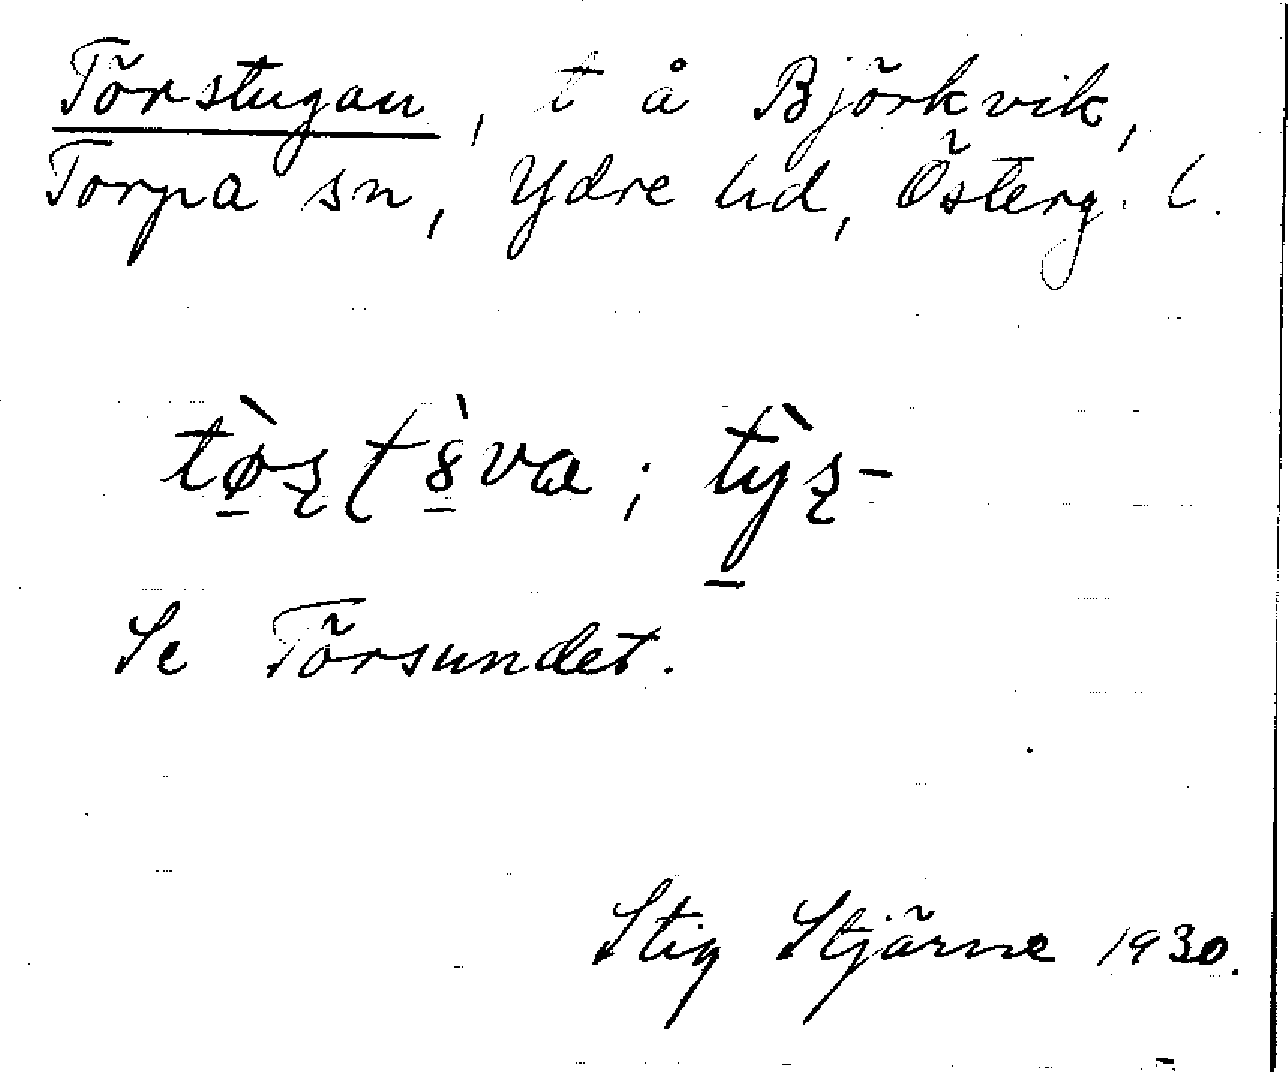 Törstugan, t å Björkvik,
Torpa sn, Ydre hd, Österg. l.
tø̱̀ʂʈ8̱̀va; tỳ̱ʂ-
Se Törsundet.
Stig Stjärne 1930.